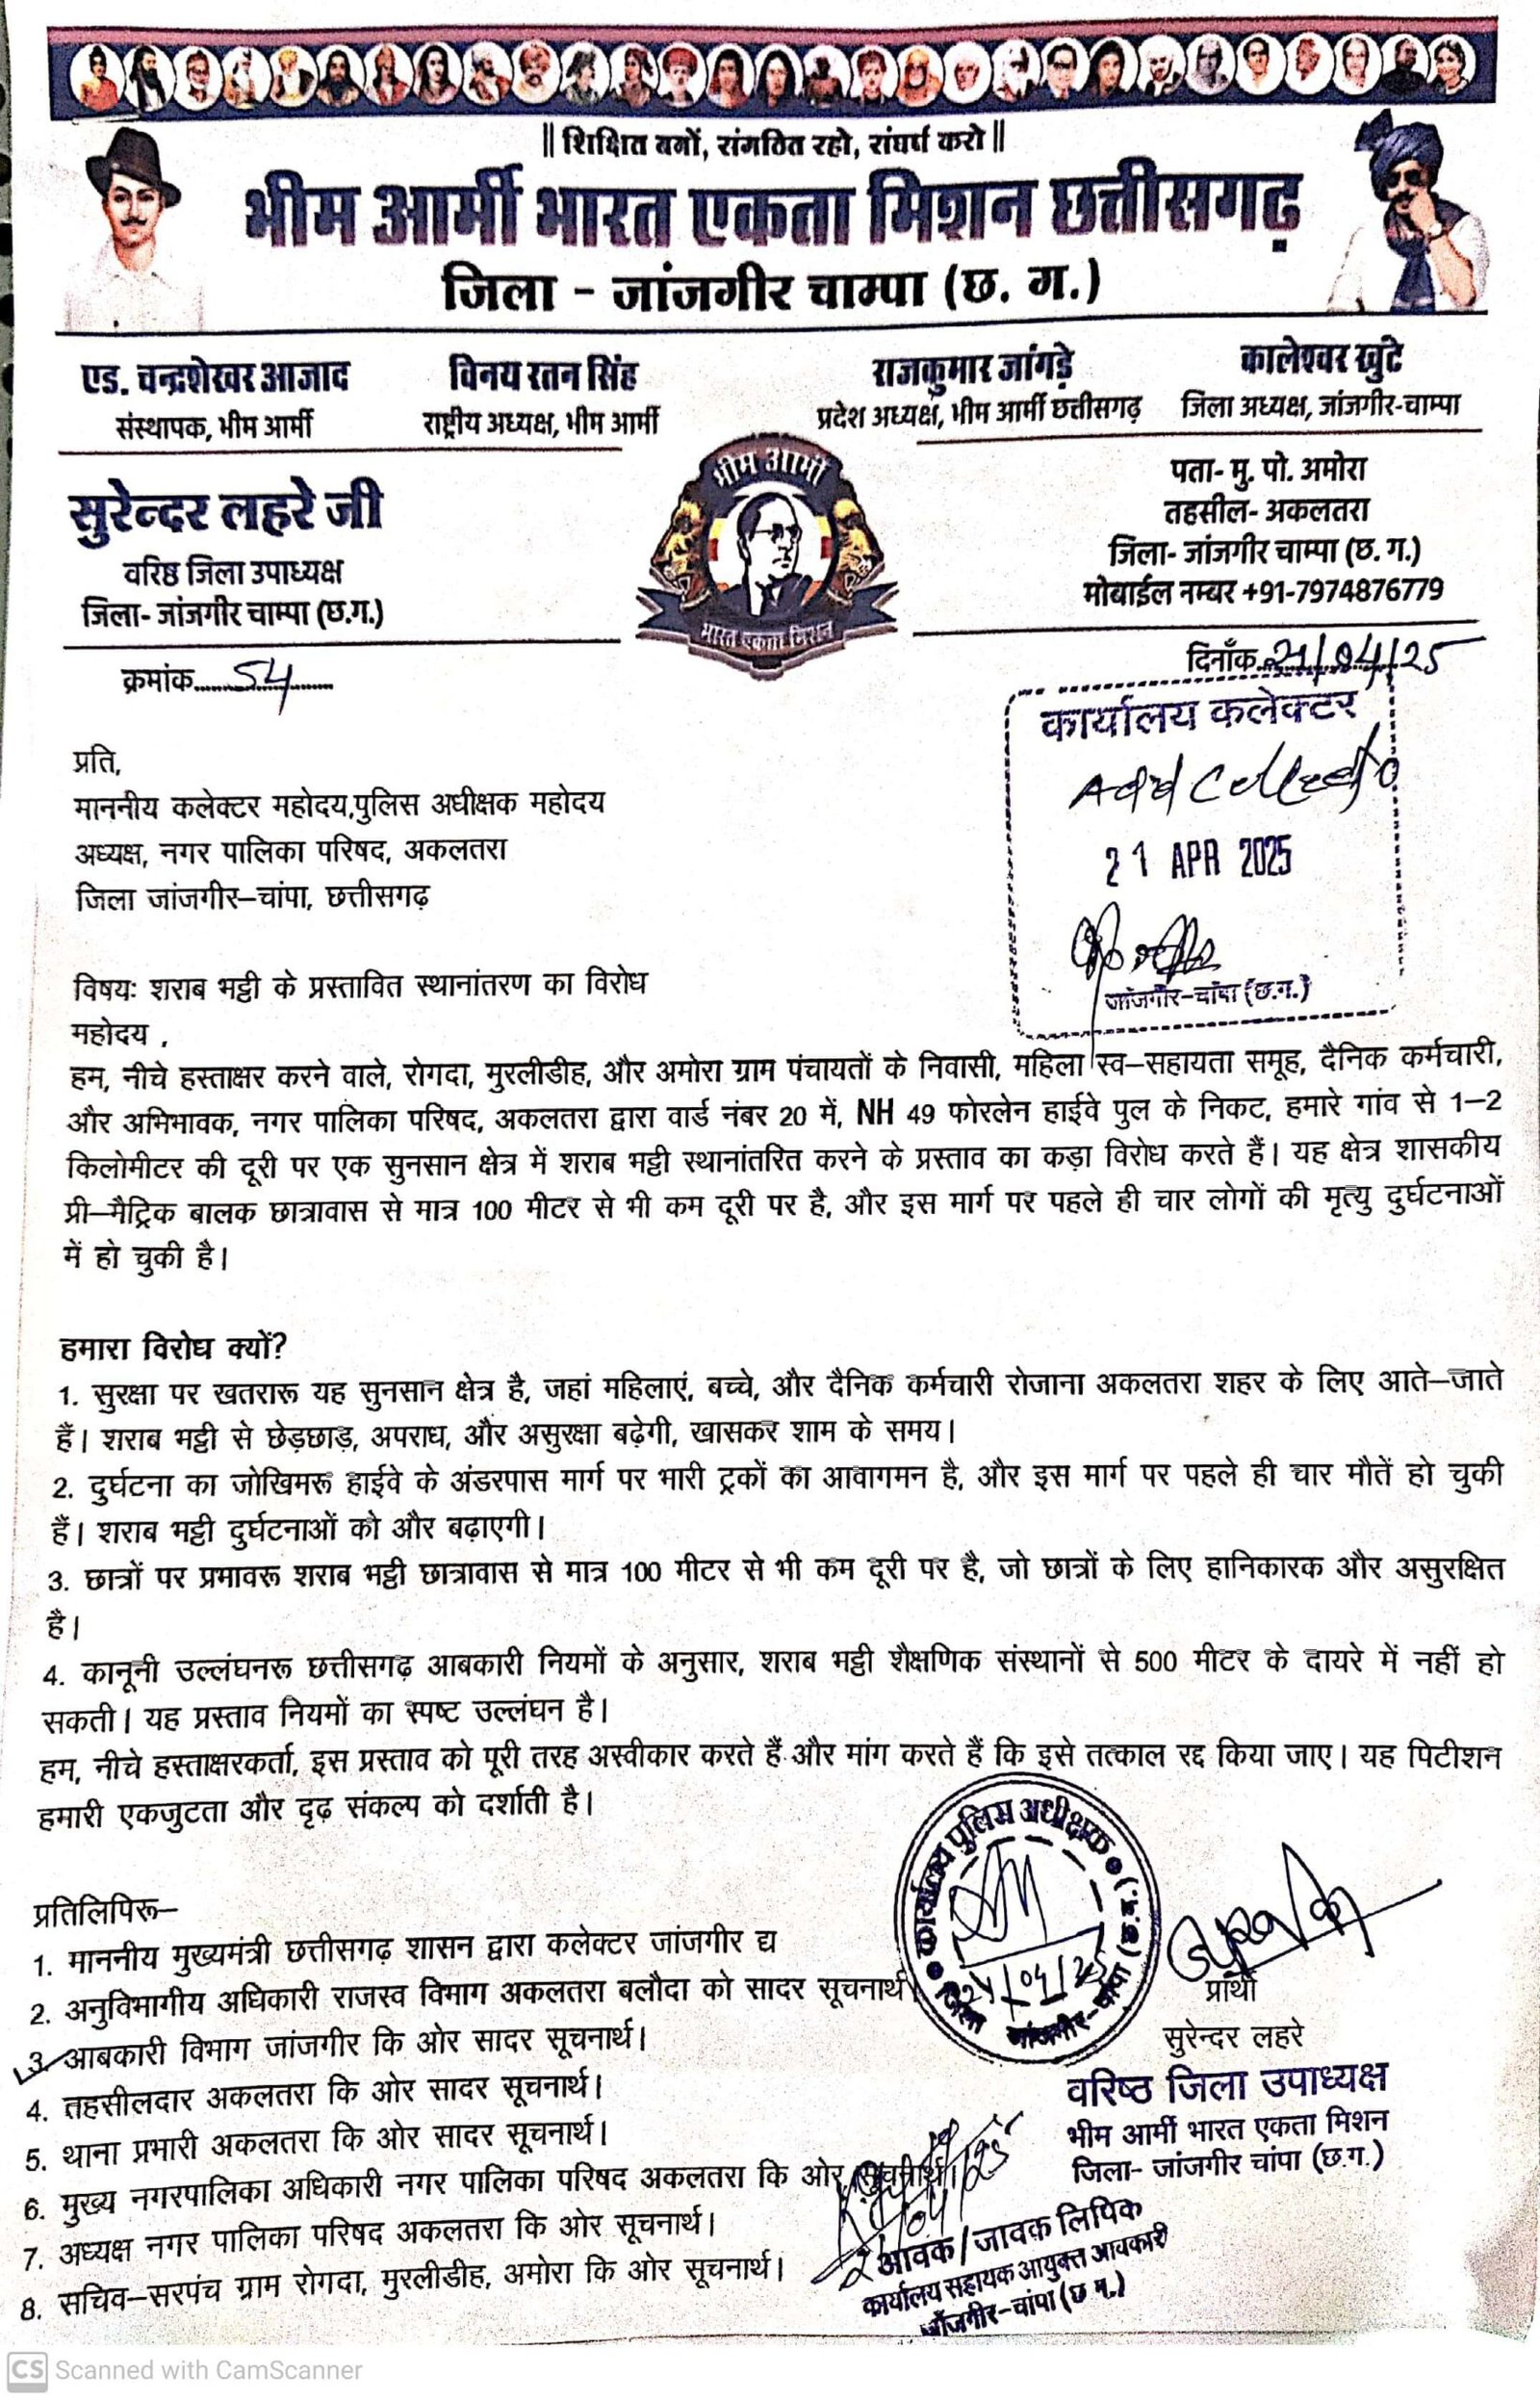 || शिक्षित बनों, संगठित रहो, संघर्ष करो ||
भीम आर्मी भारत एकता मिशन छत्तीसगढ़
जिला - जांजगीर चाम्पा (छ. ग.)
एड. चन्द्रशेखर आजाद
संस्थापक, भीम आर्मी
विनय रतन सिंह
राष्ट्रीय अध्यक्ष, भीम आर्मी
राजकुमार जांगड़े
प्रदेश अध्यक्ष, भीम आर्मी छत्तीसगढ़
कालेश्वर खुटे
जिला अध्यक्ष, जांजगीर-चाम्पा
सुरेन्दर लहरे जी
वरिष्ठ जिला उपाध्यक्ष
जिला- जांजगीर चाम्पा (छ.ग.)
भीम आर्मी
भारत एकता मिशन
पता- मु. पो. अमोरा
तहसील- अकलतरा
जिला- जांजगीर चाम्पा (छ. ग.)
मोबाईल नम्बर +91-7974876779
क्रमांक........54........
दिनाँक..21/04/25
कार्यालय कलेक्टर
Add Collector
21 APR 2025
जांजगीर-चांपा (छ.ग.)
प्रति,
माननीय कलेक्टर महोदय,पुलिस अधीक्षक महोदय
अध्यक्ष, नगर पालिका परिषद, अकलतरा
जिला जांजगीर–चांपा, छत्तीसगढ़
विषयः शराब भट्टी के प्रस्तावित स्थानांतरण का विरोध
महोदय ,
हम, नीचे हस्ताक्षर करने वाले, रोगदा, मुरलीडीह, और अमोरा ग्राम पंचायतों के निवासी, महिला स्व–सहायता समूह, दैनिक कर्मचारी,
और अभिभावक, नगर पालिका परिषद, अकलतरा द्वारा वार्ड नंबर 20 में, NH 49 फोरलेन हाईवे पुल के निकट, हमारे गांव से 1–2
किलोमीटर की दूरी पर एक सुनसान क्षेत्र में शराब भट्टी स्थानांतरित करने के प्रस्ताव का कड़ा विरोध करते हैं। यह क्षेत्र शासकीय
प्री–मैट्रिक बालक छात्रावास से मात्र 100 मीटर से भी कम दूरी पर है, और इस मार्ग पर पहले ही चार लोगों की मृत्यु दुर्घटनाओं
में हो चुकी है।
हमारा विरोध क्यों?
1. सुरक्षा पर खतरारू यह सुनसान क्षेत्र है, जहां महिलाएं, बच्चे, और दैनिक कर्मचारी रोजाना अकलतरा शहर के लिए आते–जाते
हैं। शराब भट्टी से छेड़छाड़, अपराध, और असुरक्षा बढ़ेगी, खासकर शाम के समय।
2. दुर्घटना का जोखिमरू हाईवे के अंडरपास मार्ग पर भारी ट्रकों का आवागमन है, और इस मार्ग पर पहले ही चार मौतें हो चुकी
हैं। शराब भट्टी दुर्घटनाओं को और बढ़ाएगी।
3. छात्रों पर प्रभावरू शराब भट्टी छात्रावास से मात्र 100 मीटर से भी कम दूरी पर है, जो छात्रों के लिए हानिकारक और असुरक्षित
है।
4. कानूनी उल्लंघनरू छत्तीसगढ़ आबकारी नियमों के अनुसार, शराब भट्टी शैक्षणिक संस्थानों से 500 मीटर के दायरे में नहीं हो
सकती। यह प्रस्ताव नियमों का स्पष्ट उल्लंघन है।
हम, नीचे हस्ताक्षरकर्ता, इस प्रस्ताव को पूरी तरह अस्वीकार करते हैं और मांग करते हैं कि इसे तत्काल रद्द किया जाए। यह पिटीशन
हमारी एकजुटता और दृढ़ संकल्प को दर्शाती है।
प्रतिलिपिरू–
1. माननीय मुख्यमंत्री छत्तीसगढ़ शासन द्वारा कलेक्टर जांजगीर द्य
2. अनुविभागीय अधिकारी राजस्व विभाग अकलतरा बलौदा को सादर सूचनार्थ।
3. आबकारी विभाग जांजगीर कि ओर सादर सूचनार्थ।
4. तहसीलदार अकलतरा कि ओर सादर सूचनार्थ।
5. थाना प्रभारी अकलतरा कि ओर सादर सूचनार्थ।
6. मुख्य नगरपालिका अधिकारी नगर पालिका परिषद अकलतरा कि ओर सूचनार्थ।
7. अध्यक्ष नगर पालिका परिषद अकलतरा कि ओर सूचनार्थ।
8. सचिव–सरपंच ग्राम रोगदा, मुरलीडीह, अमोरा कि ओर सूचनार्थ।
कार्यालय पुलिस अधीक्षक
21/04/25
जिला जांजगीर-चांपा (छ.ग.)
प्रार्थी
सुरेन्दर लहरे
वरिष्ठ जिला उपाध्यक्ष
भीम आर्मी भारत एकता मिशन
जिला- जांजगीर चांपा (छ.ग.)
आवक/जावक लिपिक
कार्यालय सहायक आयुक्त आबकारी
जाँजगीर-चांपा (छ.ग.)
CS Scanned with CamScanner